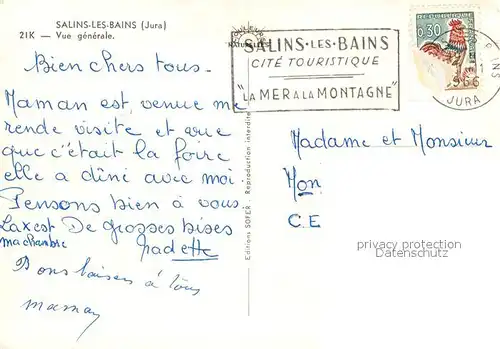 SALINS-LES-BAINS (Jura)
21K — Vue générale.
Bien chers tous.
Maman est venue me
rende visite et vue
que c'était la foire
elle a dîné avec moi.
Pensons bien à vous.
La x est De grosses bises
ma chambre
Nadette
Bons baisers à tous
maman
Editions SOFER - Reproduction interdite
SALINS-LES-BAINS
CITÉ TOURISTIQUE
"LA MER A LA MONTAGNE"
0,30
1966
JURA
Madame et Monsieur
Mon
C.E
privacy protection
Datenschutz